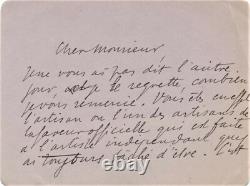 Cher Monsieur
Je ne vous ai pas dit l'autre
jour et je le regrette combien
je vous remercie. Vous êtes en effet
l'artisan ou l'un des artisans de
la faveur officielle qui est faite
à l'artiste indépendant que
ai toujours tâché d'être. C'est